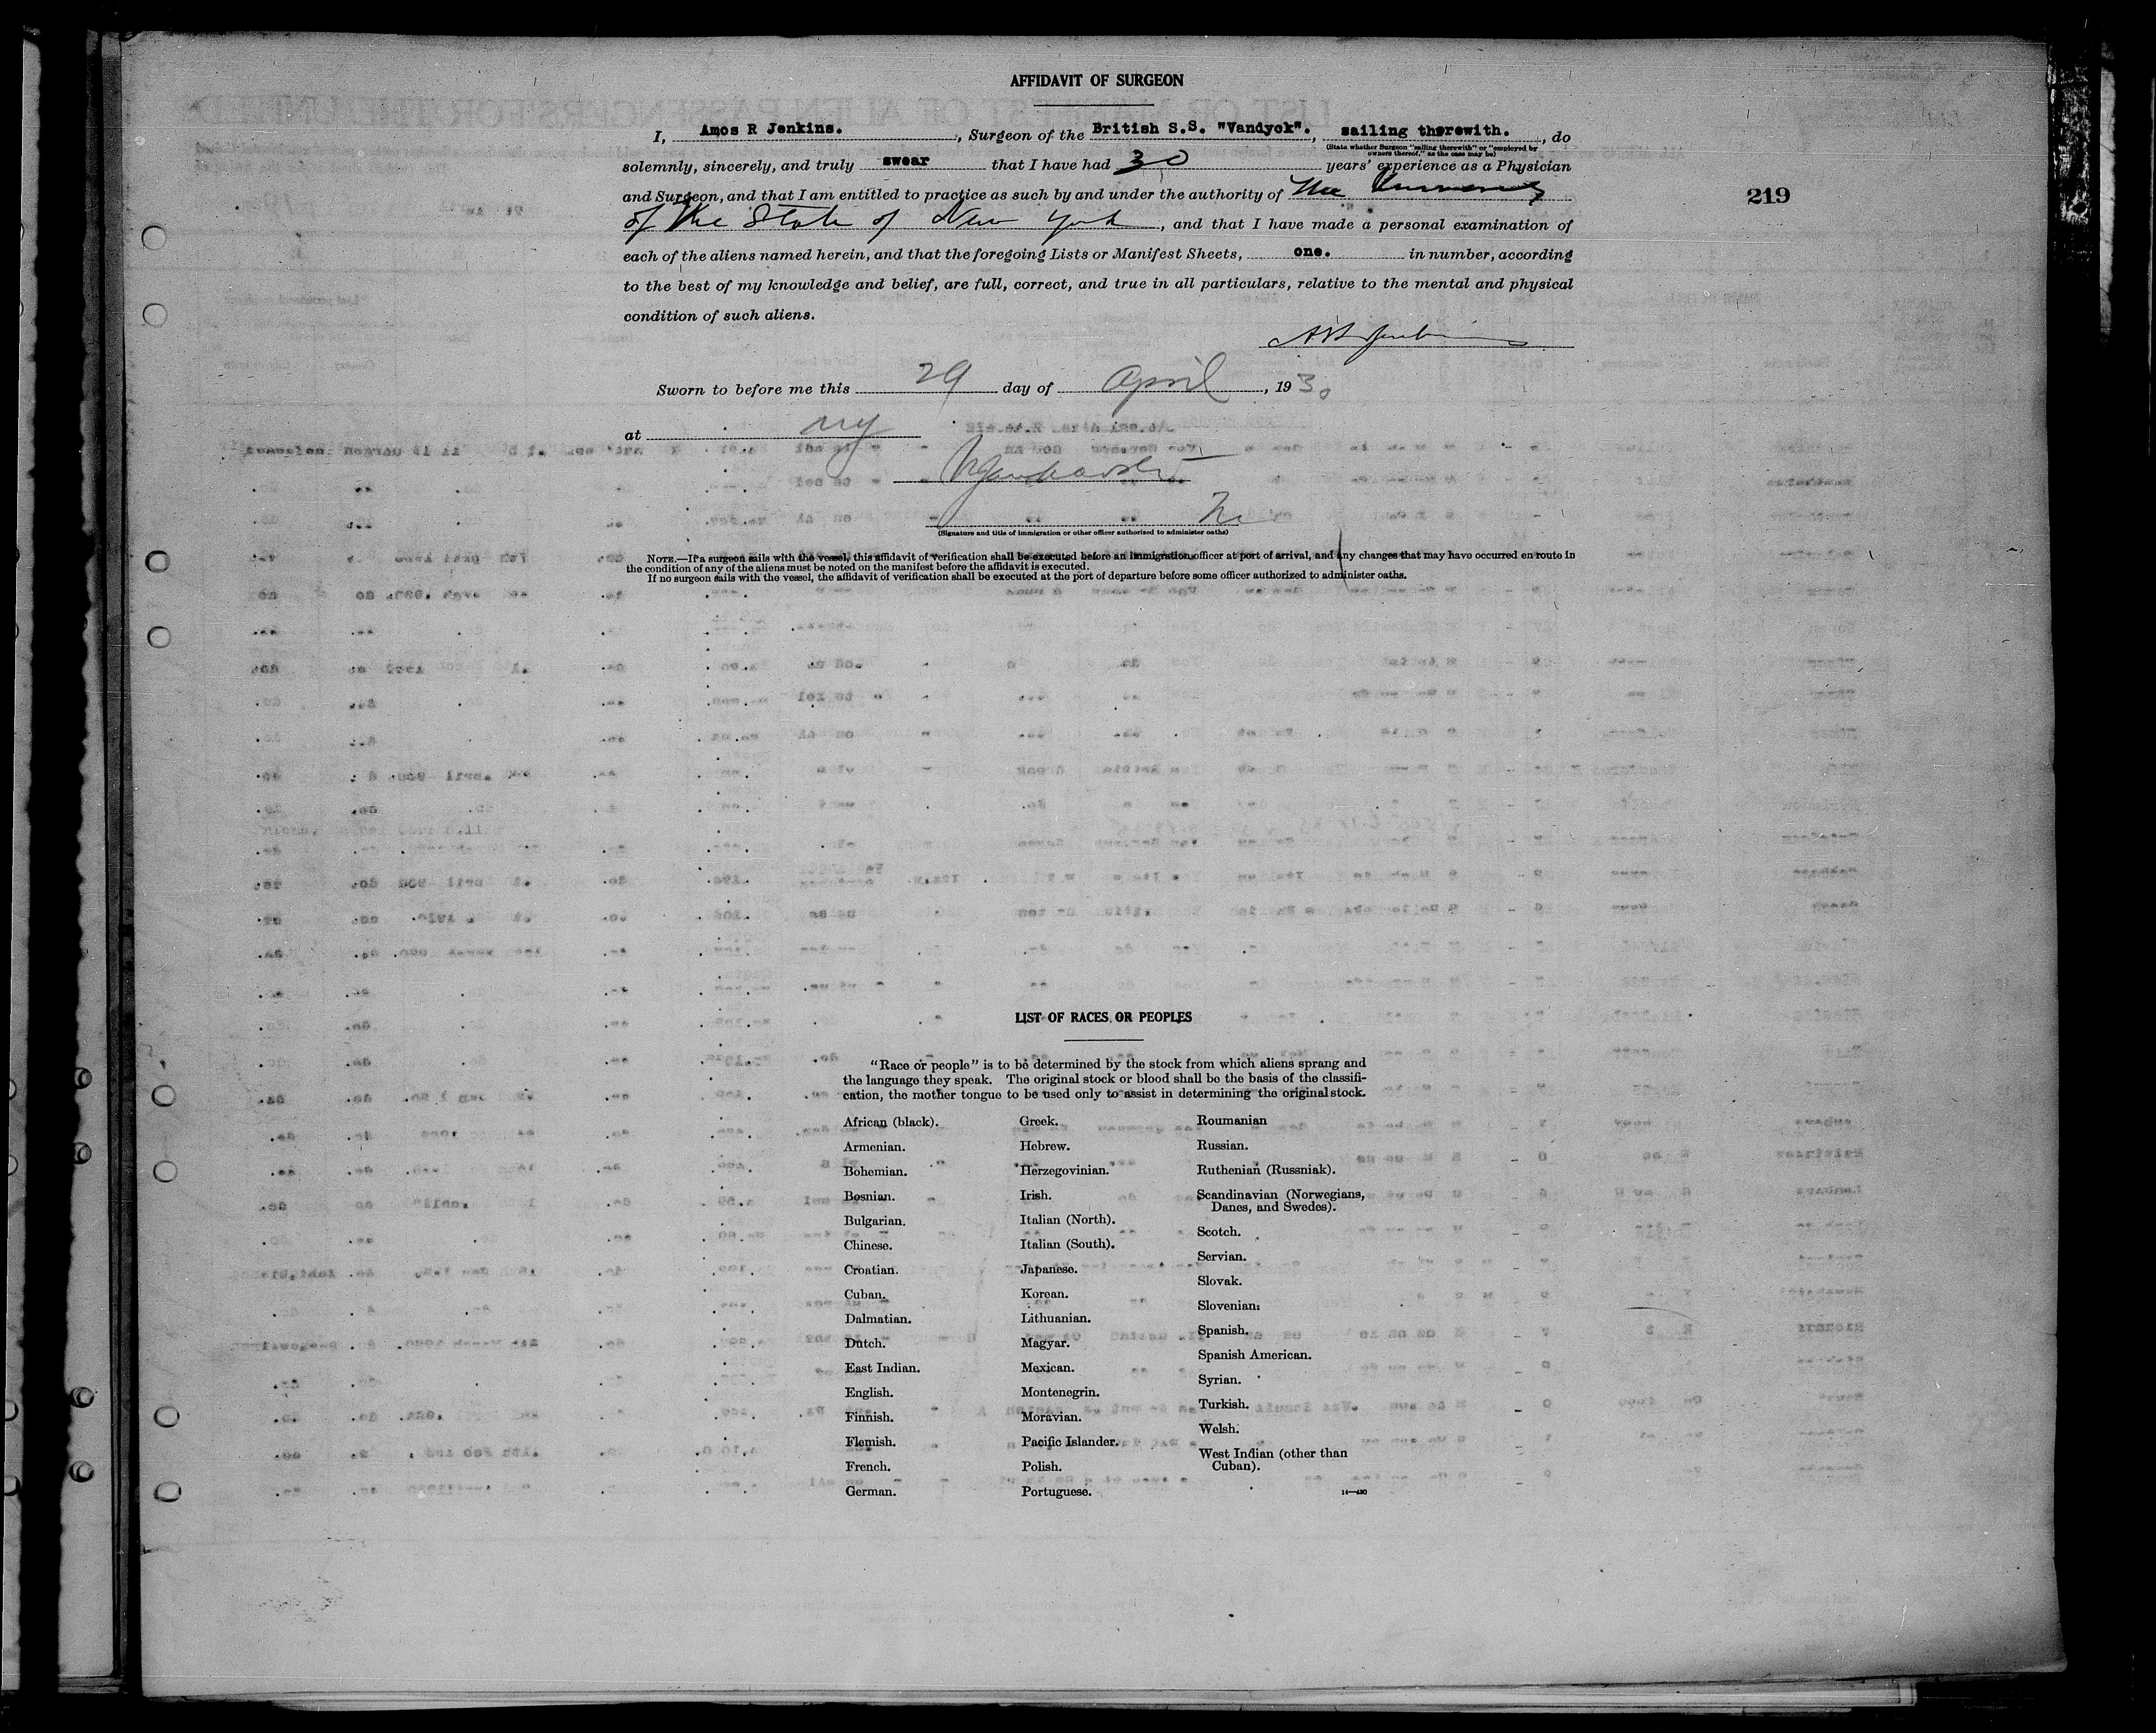 AFFIDAVIT OF SURGEON
I, Amos R Jenkins. , Surgeon of the British S.S. "Vandyck". , sailing therewith. , do
(State whether Surgeon "sailing therewith" or "employed by
owners thereof," as the case may be)
solemnly, sincerely, and truly swear that I have had 30 years' experience as a Physician
and Surgeon, and that I am entitled to practice as such by and under the authority of The University
219
of the State of New York , and that I have made a personal examination of
each of the aliens named herein, and that the foregoing Lists or Manifest Sheets, one. in number, according
to the best of my knowledge and belief, are full, correct, and true in all particulars, relative to the mental and physical
condition of such aliens.
A R Jenkins
Sworn to before me this 29 day of April , 1930
at NY
(Signature and title of immigration or other officer authorized to administer oaths)
NOTE.—If a surgeon sails with the vessel, this affidavit of verification shall be executed before an immigration officer at port of arrival, and any changes that may have occurred en route in
the condition of any of the aliens must be noted on the manifest before the affidavit is executed.
If no surgeon sails with the vessel, the affidavit of verification shall be executed at the port of departure before some officer authorized to administer oaths.
LIST OF RACES OR PEOPLES
"Race or people" is to be determined by the stock from which aliens sprang and
the language they speak. The original stock or blood shall be the basis of the classifi-
cation, the mother tongue to be used only to assist in determining the original stock.
African (black).
Armenian.
Bohemian.
Bosnian.
Bulgarian.
Chinese.
Croatian.
Cuban.
Dalmatian.
Dutch.
East Indian.
English.
Finnish.
Flemish.
French.
German.
Greek.
Hebrew.
Herzegovinian.
Irish.
Italian (North).
Italian (South).
Japanese.
Korean.
Lithuanian.
Magyar.
Mexican.
Montenegrin.
Moravian.
Pacific Islander.
Polish.
Portuguese.
Roumanian
Russian.
Ruthenian (Russniak).
Scandinavian (Norwegians,
Danes, and Swedes).
Scotch.
Servian.
Slovak.
Slovenian.
Spanish.
Spanish American.
Syrian.
Turkish.
Welsh.
West Indian (other than
Cuban).
14—430